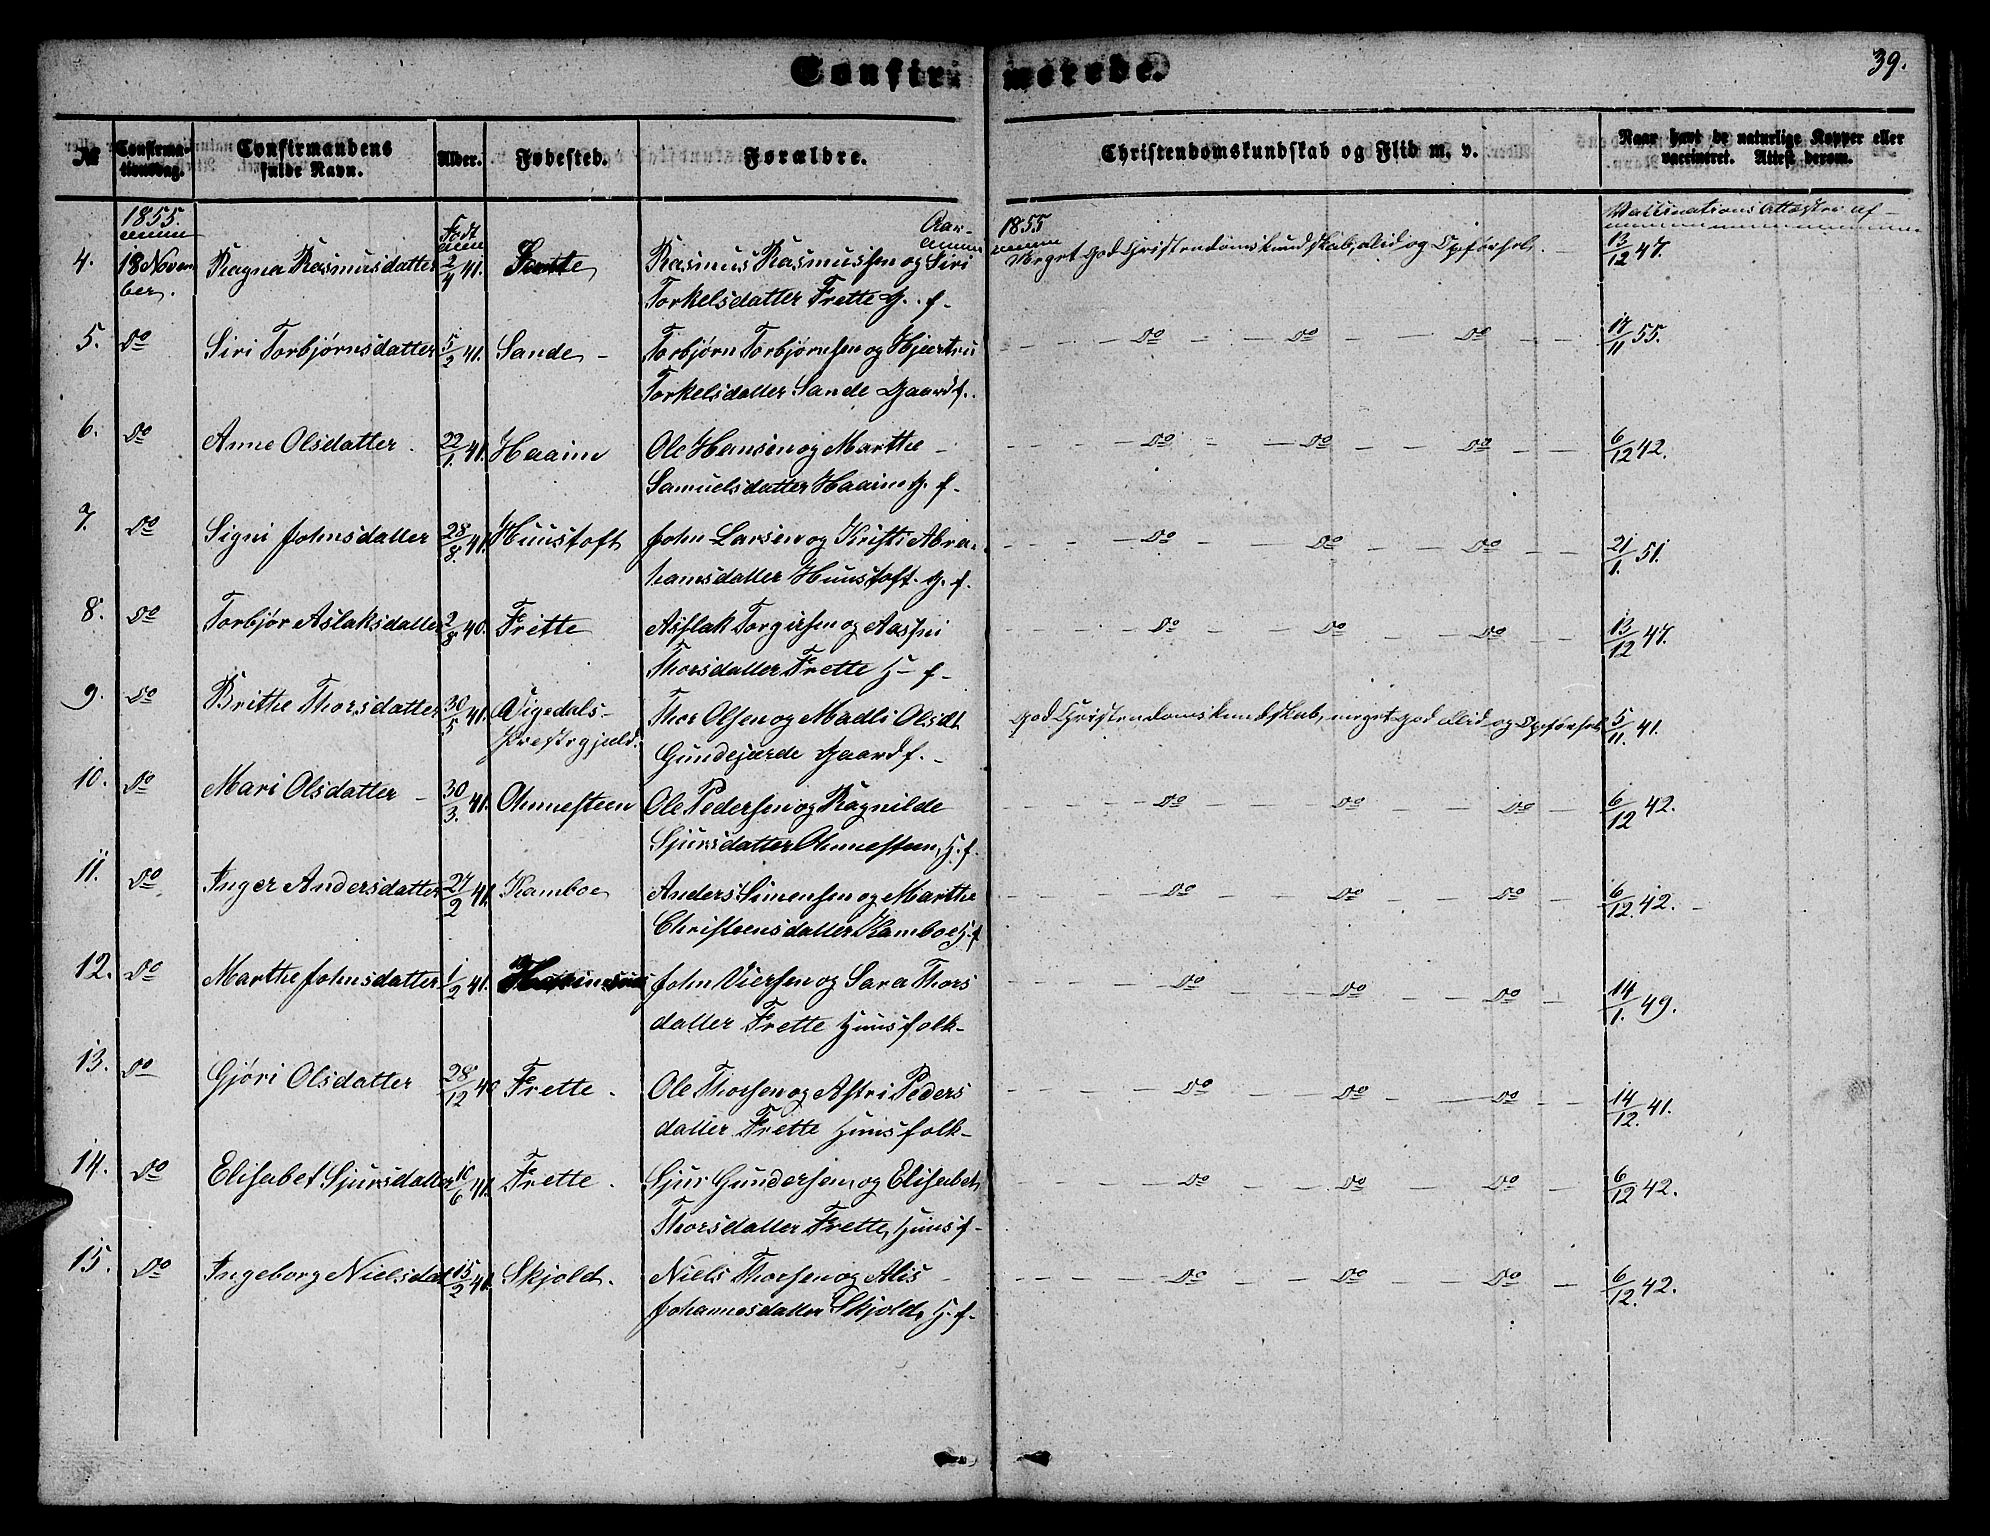 Confirmerede.
39.
No Confirmationsdag. Confirmandens fulde Navn. Alder. Fødested. Forældre. Christendomskundskab og Flid m. v. Naar havt de naturlige Kopper eller vaccineret. Attest derom.
1855. Født Aar 1855 Vaccinations Attester af
4. 18 November. Ragna Rasmusdatter 2/4 41. Rasmus Rasmussen og Siri Meget god Christendomskundskab, Flid og Opførsel. 13/12 47.
Torkelsdatter Frette G. f.
5. Do Siri Torbjørnsdatter 5/2 41. Sande Torbjørn Torbjørnsen og Hjertru - Do - Do - Do 17/11 55.
Torkelsdatter Sande Gaardf.
6. Do Anne Olsdatter. 22/1. 41. Haaim Ole Hansen og Marthe - Do - Do - Do 6/12 42.
Samuelsdatter Haaim G. f.
7. Do Signi Johnsdatter 28/8. 41. Huustoft John Larsen og Kristi Abra- - Do - Do - Do 21/1. 51.
hamsdatter Huustoft. G. f.
8. Do Torbjør Aslaksdatter 2/8 40. Frette Asslak Torgiersen og Aasni - Do - Do - Do 13/12 47.
Thorsdatter Frette H. f.
9. Do Brithe Thorsdatter 30/5 41. Vigedals- Thor Olsen og Madli Olsdt god Christendomskundskab, meget god Flid og Opførsel 5/11. 41.
Prestegjeld. Gundejærde Gaardf.
10. Do Mari Olsdatter 30/3. 41. Ommesteen Ole Pedersen og Ragnilde - Do - Do - Do 6/12 42.
Sjursdatter Ommesteen, H. f.
11. Do Inger Andersdatter 27/2 41. Kamboe Anders Simensen og Marthe - Do - Do - Do 6/12. 42.
Christensdatter Kamboe H. f
12. Do Marthe Johnsdatter 1/2 41. John Viersen og Sara Thors - Do - Do - Do 14/1. 49.
datter Frette Huusfolk
13. Do Gjøri Olsdatter 28/12 40 Frette. Ole Thorsen og Astri Peders - Do - Do - Do 14/12. 41.
datter Frette Huusfolk
14. Do Elisabet Sjursdatter 10/6 41. Frette. Sjur Gundersen og Elisabet - Do - Do - Do 6/12 42.
Thorsdatter Frette, Huusf
15. Do Ingeborg Nielsdat 15/2 41. Skjold. Niels Thorsen og Alis - Do - Do - Do 6/12. 42.
Johannesdatter Skjold, H. f.